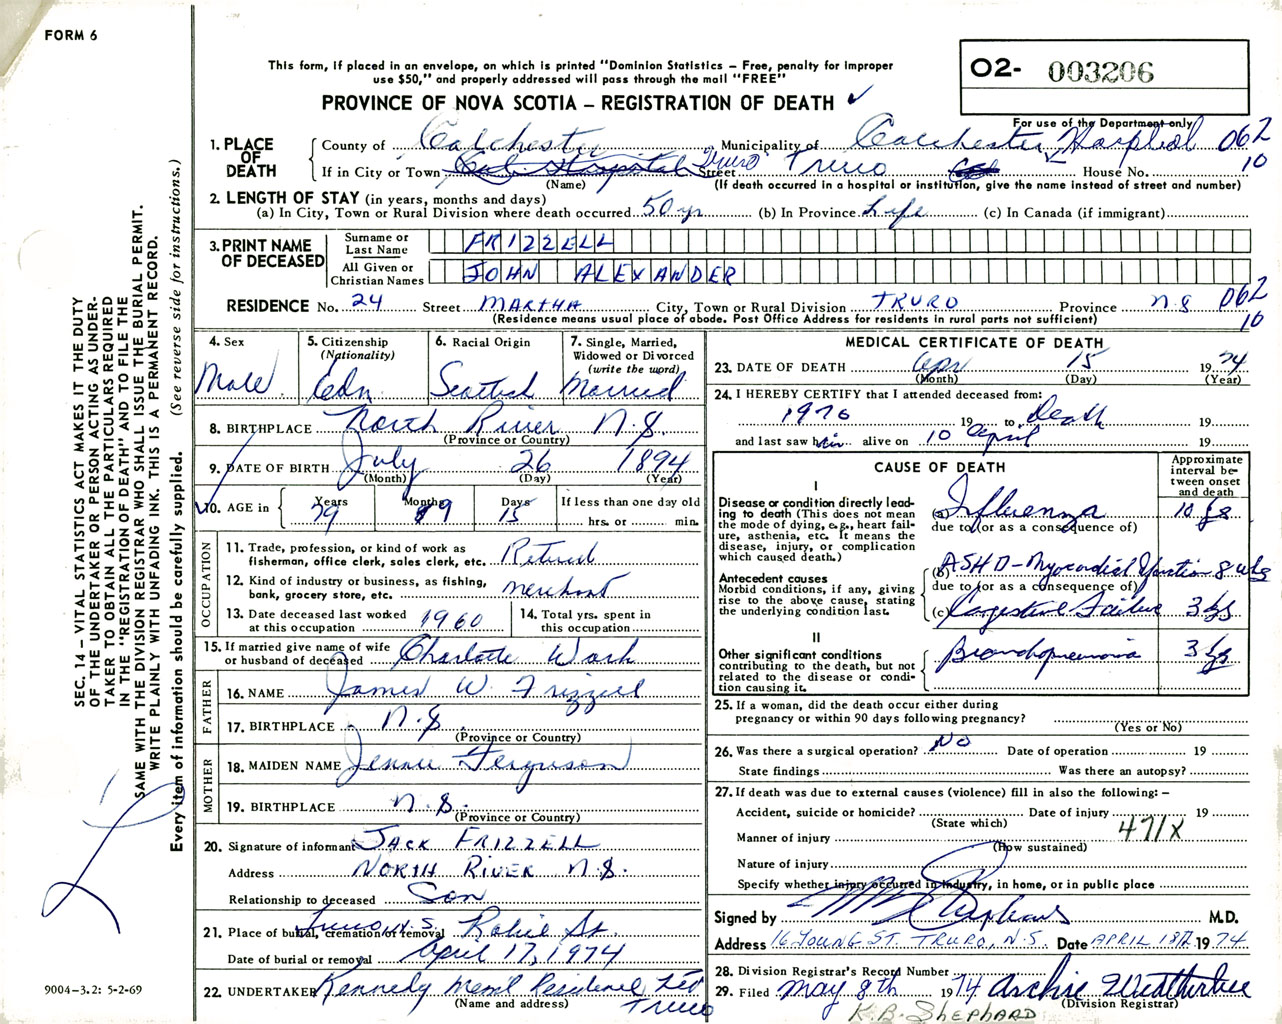 FORM 6
This form, if placed in an envelope, on which is printed "Dominion Statistics – Free, penalty for improper
use $50," and properly addressed will pass through the mail "FREE"
PROVINCE OF NOVA SCOTIA – REGISTRATION OF DEATH ✓
O2- 003206
For use of the Department only
SEC. 14 – VITAL STATISTICS ACT MAKES IT THE DUTY
OF THE UNDERTAKER OR PERSON ACTING AS UNDER-
TAKER TO OBTAIN ALL THE PARTICULARS REQUIRED
IN THE "REGISTRATION OF DEATH" AND TO FILE THE
SAME WITH THE DIVISION REGISTRAR WHO SHALL ISSUE THE BURIAL PERMIT.
WRITE PLAINLY WITH UNFADING INK. THIS IS A PERMANENT RECORD.
Every item of information should be carefully supplied. (See reverse side for instructions.)
1. PLACE OF DEATH
County of Colchester Municipality of Colchester Hospital 062
If in City or Town Truro Street Truro House No. 10
(Name) (If death occurred in a hospital or institution, give the name instead of street and number)
2. LENGTH OF STAY (in years, months and days)
(a) In City, Town or Rural Division where death occurred 50 yr (b) In Province Life (c) In Canada (if immigrant)
3. PRINT NAME OF DECEASED
Surname or Last Name FRIZZELL
All Given or Christian Names JOHN ALEXANDER
RESIDENCE No. 24 Street MARTHA City, Town or Rural Division TRURO Province N.S 062
(Residence means usual place of abode. Post Office Address for residents in rural parts not sufficient) 10
4. Sex Male
5. Citizenship (Nationality) Cdn.
6. Racial Origin Scottish
7. Single, Married, Widowed or Divorced (write the word) Married
8. BIRTHPLACE North River N.S.
(Province or Country)
9. DATE OF BIRTH July 26 1894
(Month) (Day) (Year)
10. AGE in Years 79 Months 9 Days 15 If less than one day old hrs. or min.
OCCUPATION
11. Trade, profession, or kind of work as fisherman, office clerk, sales clerk, etc. Retired
12. Kind of industry or business, as fishing, bank, grocery store, etc. merchant
13. Date deceased last worked at this occupation 1960
14. Total yrs. spent in this occupation
15. If married give name of wife or husband of deceased Charlotte Wark
FATHER
16. NAME James W. Frizzell
17. BIRTHPLACE N.S.
(Province or Country)
MOTHER
18. MAIDEN NAME Jennie Ferguson
19. BIRTHPLACE N.S.
(Province or Country)
20. Signature of informant JACK FRIZZELL
Address NORTH RIVER N.S.
Relationship to deceased Son
21. Place of burial, cremation or removal Truro, N.S. Robie St.
Date of burial or removal April 17, 1974
22. UNDERTAKER Kennedy Mem'l Residence Ltd
(Name and address) Truro
9004-3.2: 5-2-69
MEDICAL CERTIFICATE OF DEATH
23. DATE OF DEATH Apr 15 1974
(Month) (Day) (Year)
24. I HEREBY CERTIFY that I attended deceased from:
1970 19 to death 19
and last saw him alive on 10 April 19
CAUSE OF DEATH
Approximate interval between onset and death
I
Disease or condition directly leading to death (This does not mean the mode of dying, e.g., heart failure, asthenia, etc. It means the disease, injury, or complication which caused death.)
(a) Influenza 10
due to (or as a consequence of)
Antecedent causes
Morbid conditions, if any, giving rise to the above cause, stating the underlying condition last.
(b) ASHD - Myocardial 8 wks
due to (or as a consequence of)
(c) Congestive Failure 3
II
Other significant conditions
contributing to the death, but not related to the disease or condition causing it.
Bronchopneumonia 3
25. If a woman, did the death occur either during pregnancy or within 90 days following pregnancy?
(Yes or No)
26. Was there a surgical operation? No Date of operation 19
State findings Was there an autopsy?
27. If death was due to external causes (violence) fill in also the following: –
Accident, suicide or homicide? Date of injury 19
(State which) 471X
Manner of injury
(How sustained)
Nature of injury
Specify whether injury occurred in industry, in home, or in public place
Signed by M.D.
Address 16 YOUNG ST. TRURO, N.S. Date APRIL 18th 1974
28. Division Registrar's Record Number
29. Filed May 8th 1974 Archie Weatherbee
(Division Registrar)
K.B. SHEPHARD